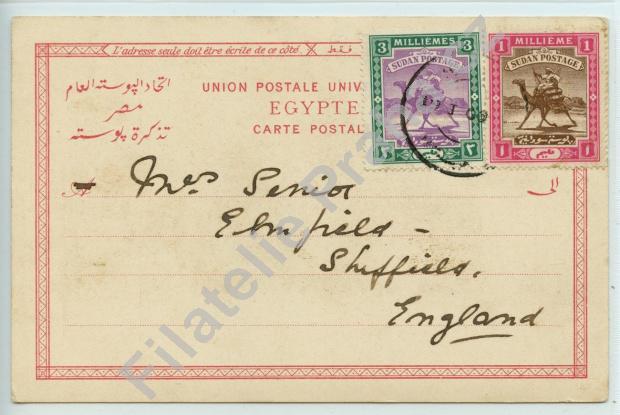 L'adresse seule doit être écrite de ce côté.
فقط
UNION POSTALE UNIV
EGYPTE
CARTE POSTAL
اتحاد البوسته العام
مصر
تذكرة بوسته
3 MILLIÈMES 3
SUDAN POSTAGE
1 MILLIÈME 1
SUDAN POSTAGE
٣
١ مليم ١
A
الى
Mrs Senior
Elmfield -
Sheffield.
England
Filatelie Pra